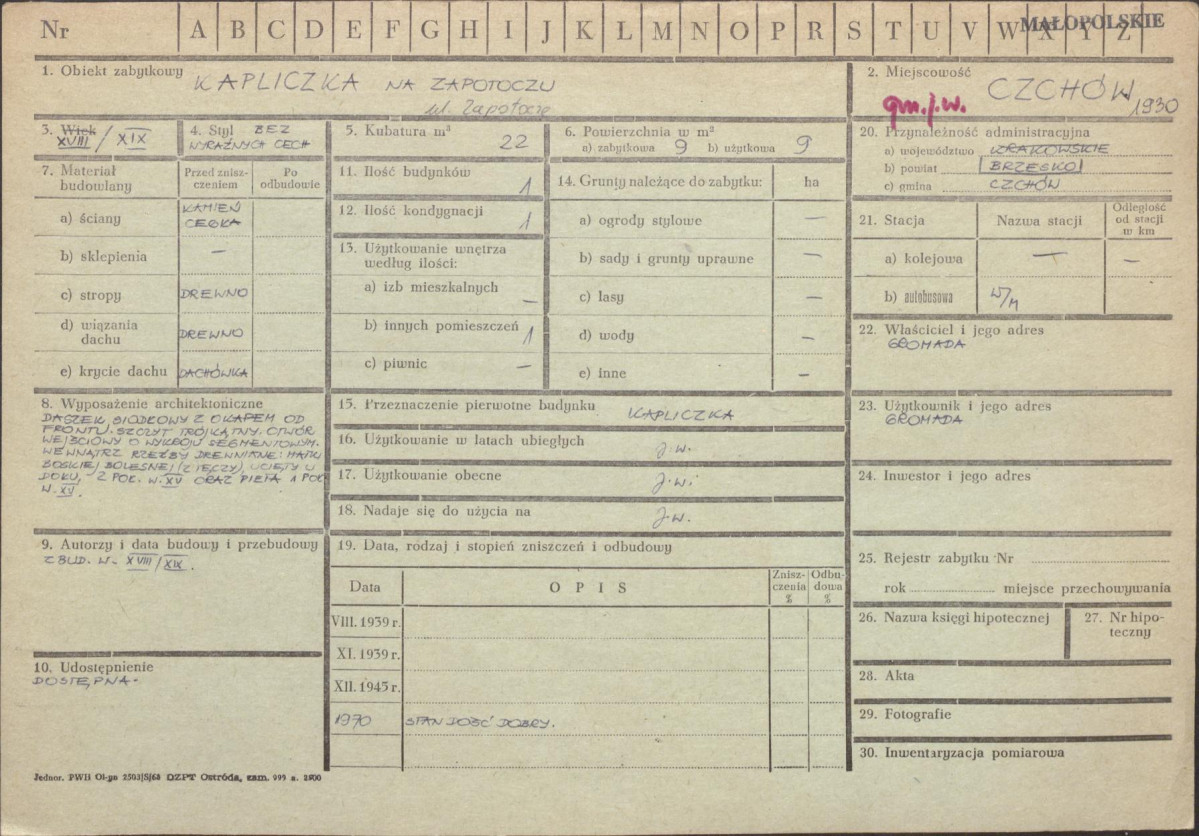 Nr A B C D E F G H I J K L M N O P R S T U V W X Y Z
MAŁOPOLSKIE
1. Obiekt zabytkowy KAPLICZKA NA ZAPOTOCZU
ul. Zapotocze
2. Miejscowość CZCHÓW
gm. j.w. 1930
3. Wiek
XVIII / XIX
4. Styl BEZ
WYRAŹNYCH CECH
5. Kubatura m³
22
6. Powierzchnia w m²
a) zabytkowa 9 b) użytkowa 9
20. Przynależność administracyjna
a) województwo KRAKOWSKIE
b) powiat BRZESKO
c) gmina CZCHÓW
7. Materiał budowlany
Przed zniszczeniem
Po odbudowie
a) ściany KAMIEŃ
CEGŁA
b) sklepienia —
c) stropy DREWNO
d) wiązania dachu DREWNO
e) krycie dachu DACHÓWKA
11. Ilość budynków 1
12. Ilość kondygnacji 1
13. Użytkowanie wnętrza
według ilości:
a) izb mieszkalnych —
b) innych pomieszczeń 1
c) piwnic —
14. Grunty należące do zabytku: ha
a) ogrody stylowe —
b) sady i grunty uprawne —
c) lasy —
d) wody —
e) inne —
21. Stacja Nazwa stacji Odległość
od stacji
w km
a) kolejowa — —
b) autobusowa W/M
22. Właściciel i jego adres
GROMADA
23. Użytkownik i jego adres
GROMADA
24. Inwestor i jego adres
8. Wyposażenie architektoniczne
DASZEK SIODŁOWY Z OKAPEM OD
FRONTU. SZCZYT TRÓJKĄTNY. OTWÓR
WEJŚCIOWY O WYKROJU SEGMENTOWYM.
WEWNĄTRZ RZEŹBY DREWNIANE: MATKI
BOSKIEJ BOLESNEJ (Z TĘCZY), UCIĘTY U
DOŁU, 2 POŁ. W. XV ORAZ PIETA 1 POŁ.
W. XV.
15. Przeznaczenie pierwotne budynku KAPLICZKA
16. Użytkowanie w latach ubiegłych J.w.
17. Użytkowanie obecne J.w.
18. Nadaje się do użycia na J.w.
9. Autorzy i data budowy i przebudowy
ZBUD. W. XVIII/XIX.
10. Udostępnienie
DOSTĘPNA.
19. Data, rodzaj i stopień zniszczeń i odbudowy
Data O P I S Znisz-
czenia
% Odbu-
dowa
%
VIII. 1939 r.
XI. 1939 r.
XII. 1945 r.
1970 STAN DOŚĆ DOBRY.
25. Rejestr zabytku Nr
rok miejsce przechowywania
26. Nazwa księgi hipotecznej
27. Nr hipo-
teczny
28. Akta
29. Fotografie
30. Inwentaryzacja pomiarowa
Jednor. PWH Ol-pn 2503/S/68 DZPT Ostróda, zam. 999 n. 2500